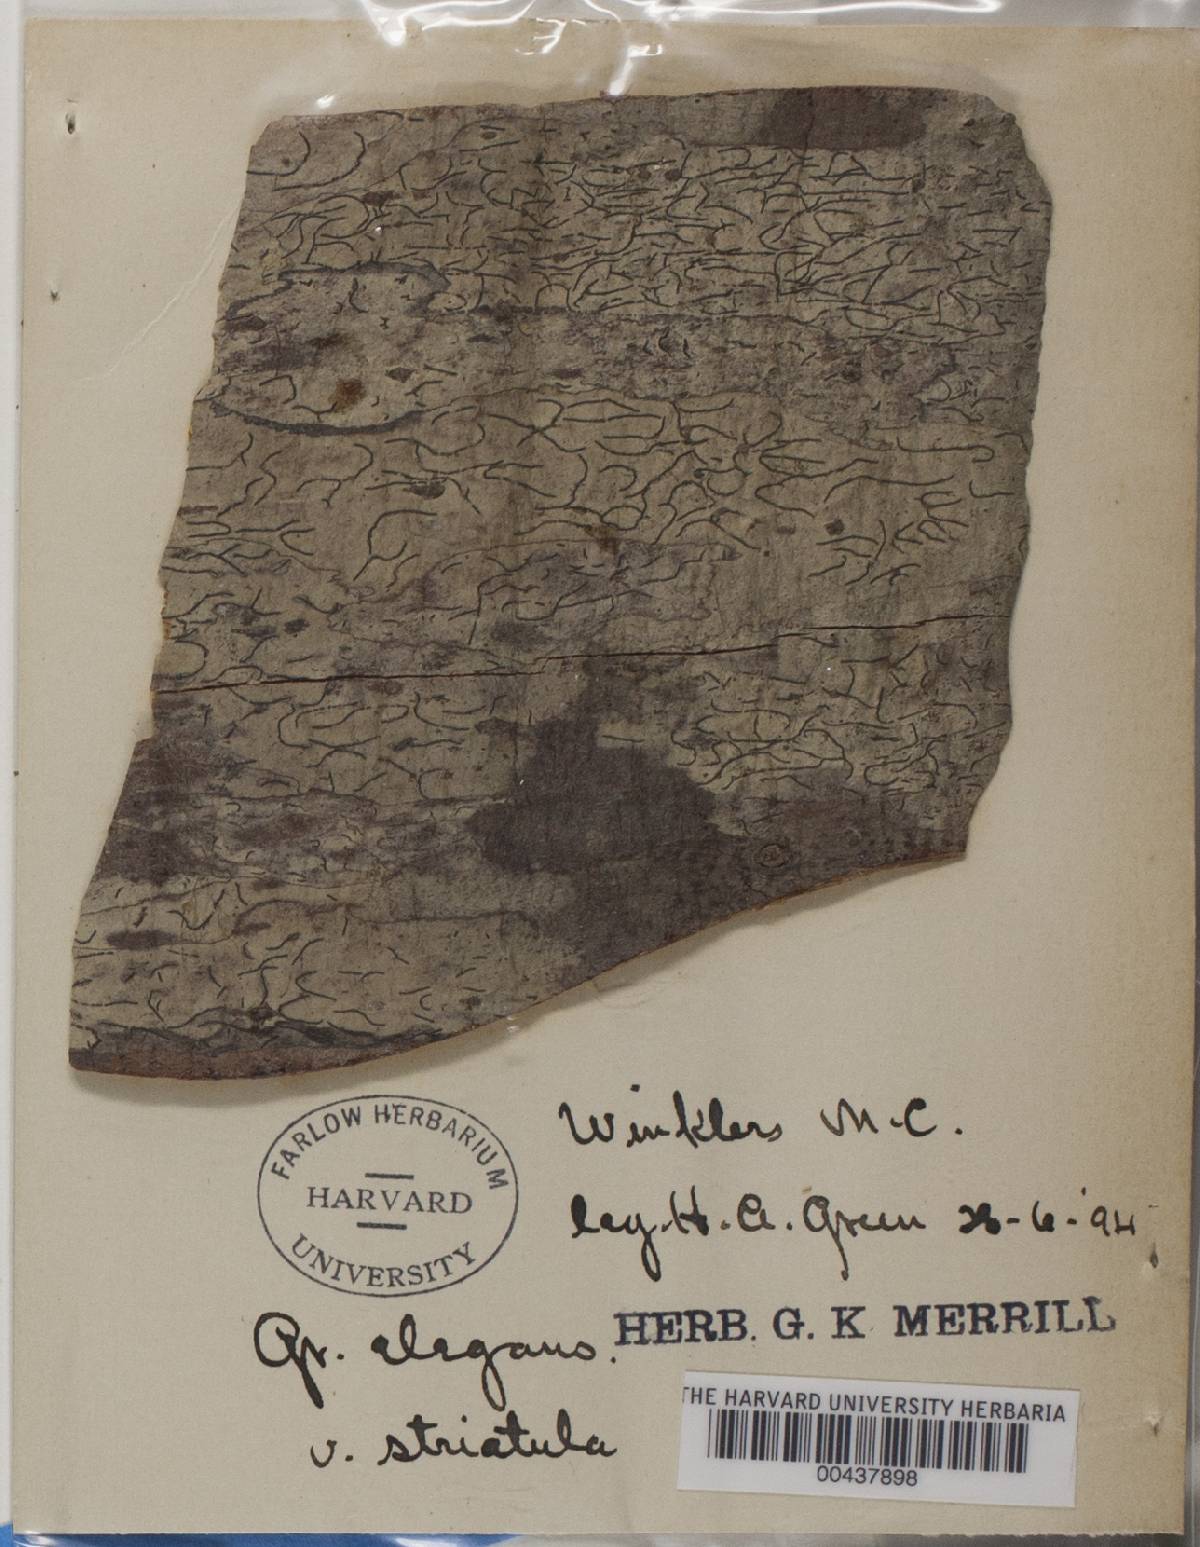 FARLOW HERBARIUM
HARVARD
UNIVERSITY
Winklers N.C.
leg. H. A. Green -6-'94
Gr. elegans.
v. striatula
HERB. G. K MERRILL
THE HARVARD UNIVERSITY HERBARIA
00437898